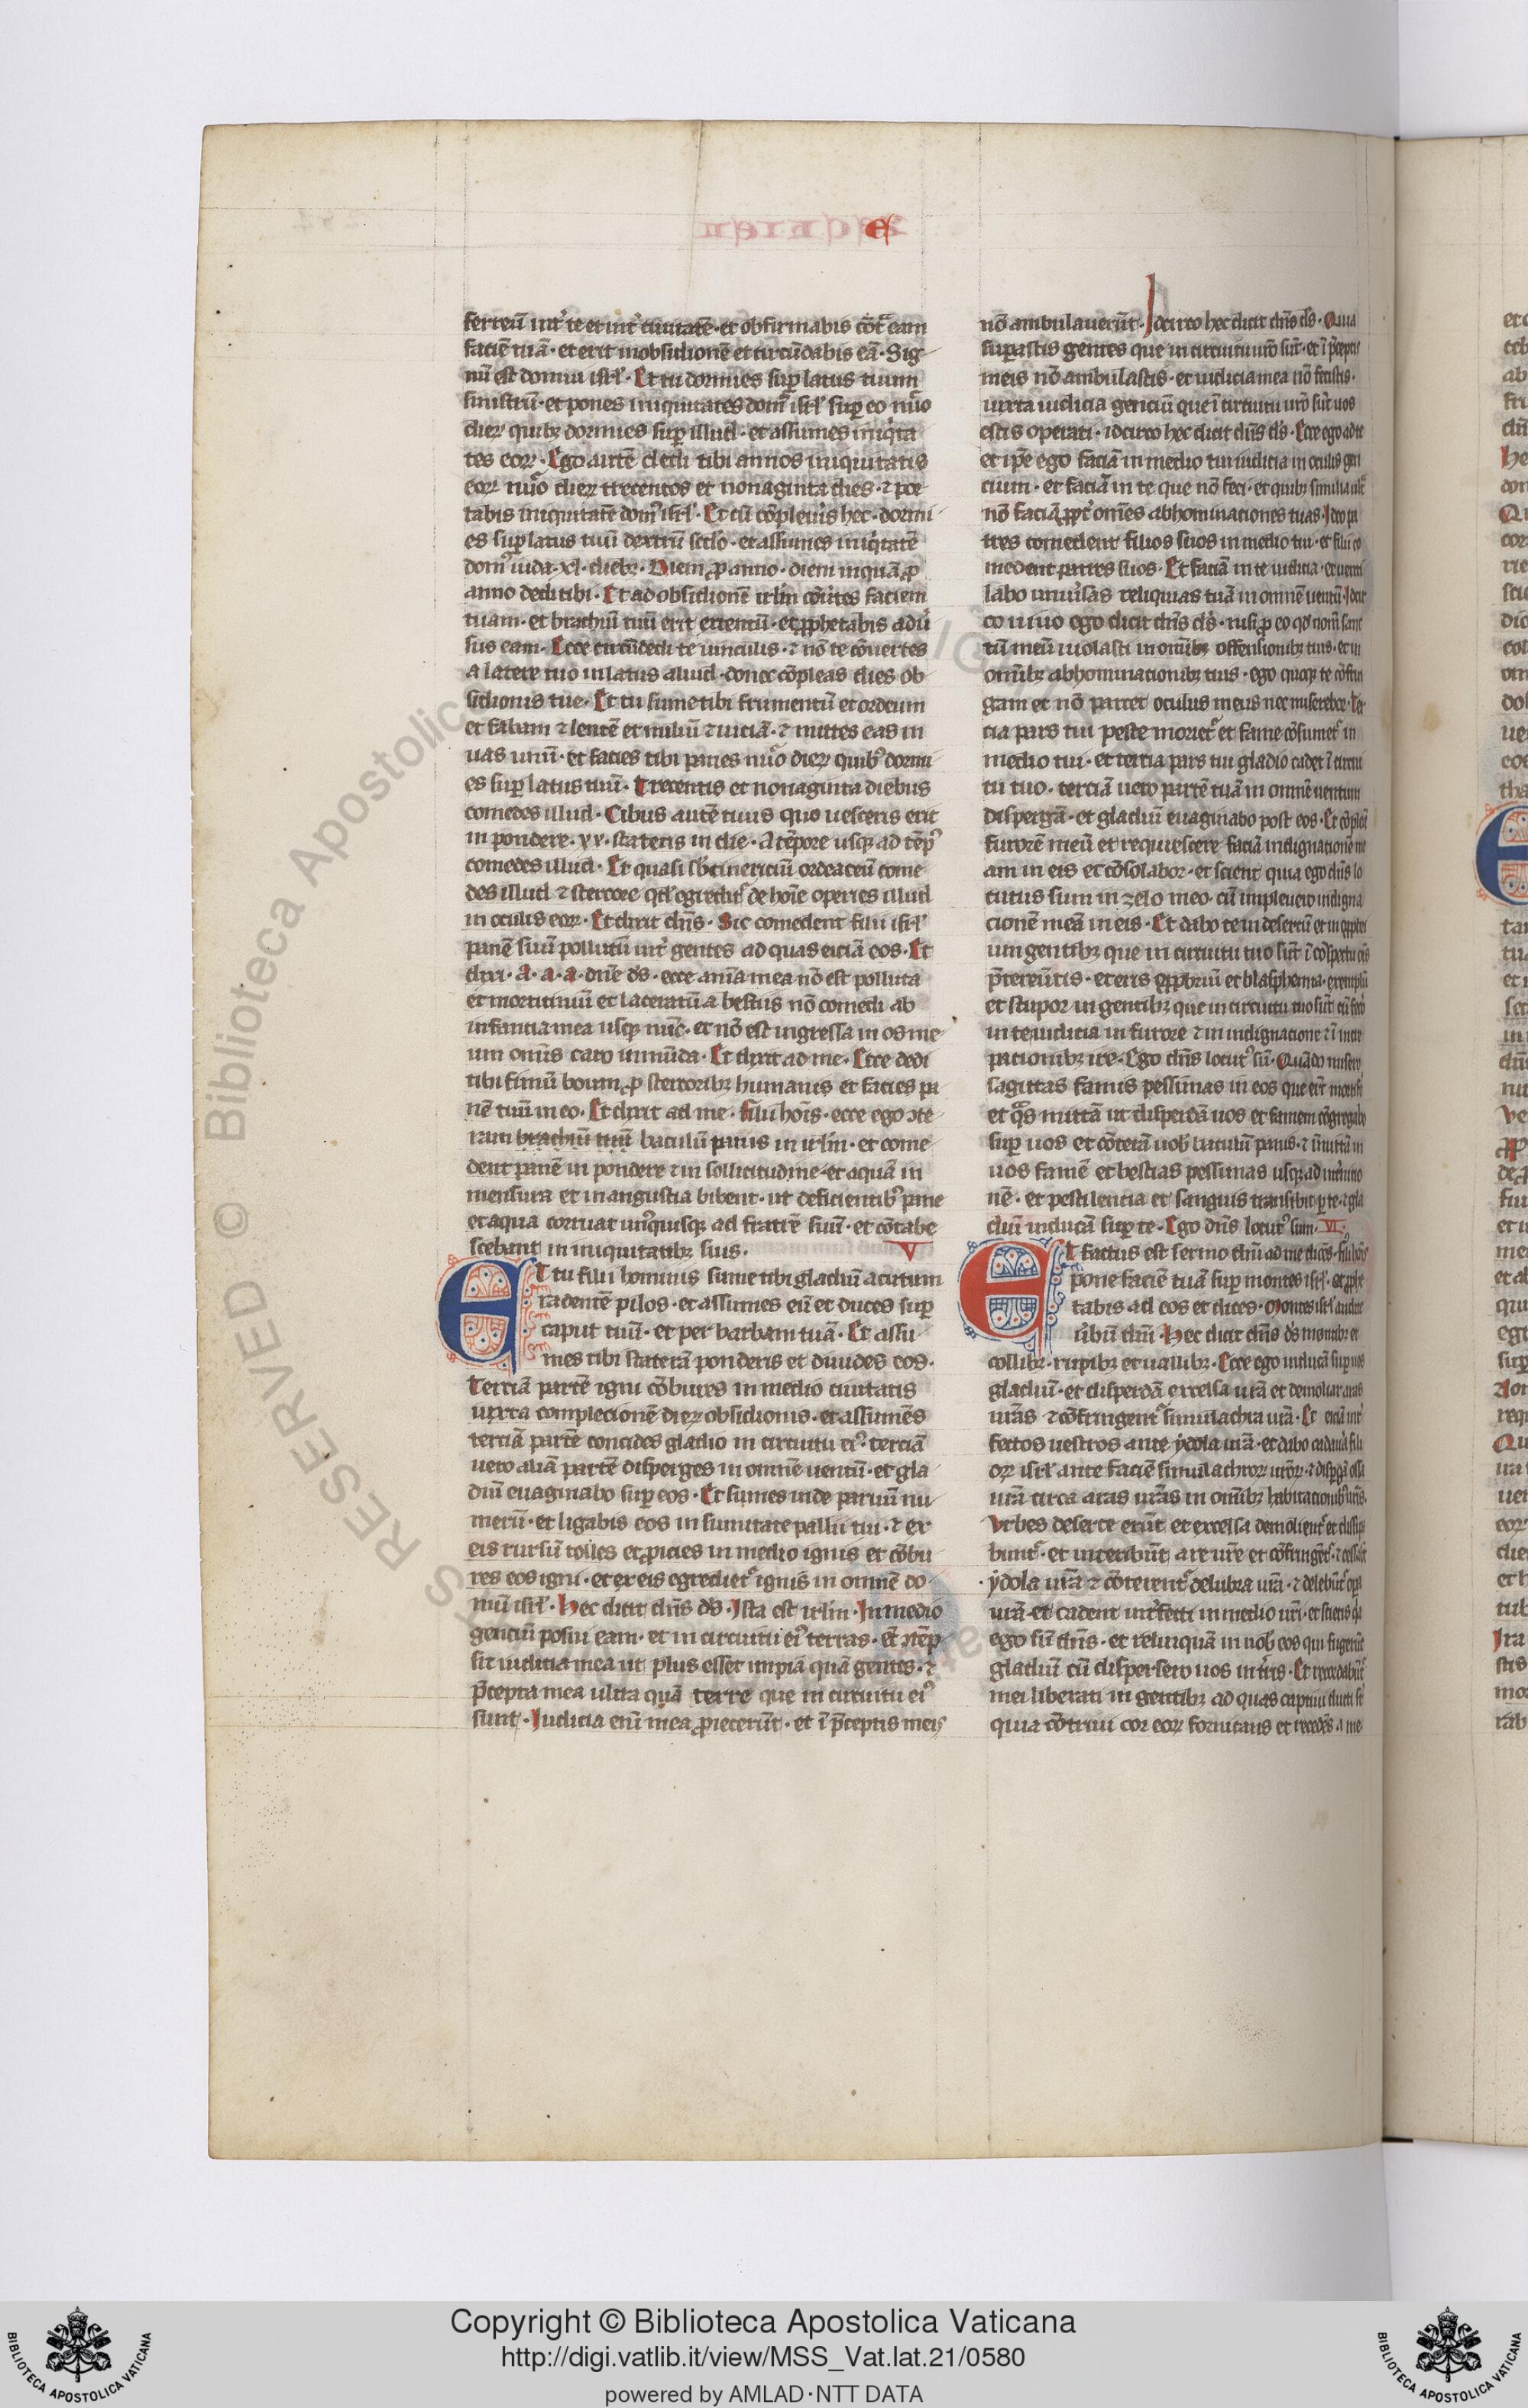 e
ferreū int̾ te et int̾ ciuitatē · et obfirmabis cōt̾ eam
faciē tuā · et erit in obsidionē et circūdabis eā · Sig
nū est domui isrl̾ · Et tu dormies sup̱ latus tuum
sinistrū · et pones iniquitates dom̾ isrl̾ sup̱ eo nūo
dieꝝ quibꝫ dormies sup̱ illud · et assumes iniq̾ta
tes eoꝝ · Ego autē dedi tibi annos iniquitatis
eoꝝ nūo dieꝝ trecentos et nonaginta dies · ⁊ poꝛ
tabis iniquitatē dom̾ isrl̾ · Et cū cōpleu̾is hec · dormi
es sup̱ latus tuū dextrū sc̄do · et assumes iniq̾tatē
dom̾ iuda · xl · diebꝫ · Diem ꝓ anno · diem inquā ꝓ
anno dedi tibi · Et ad obsidionē irlm̄ cōu̾tes faciem
tuam · et brachiū tuū erit extentū · et ꝓphetabis adu̾
sus eam · Ecce circūdedi te uinculis · ⁊ nō te cōuertes
a latere tuo in latus aliud · donec cōpleas dies ob
sidionis tue · Et tu sume tibi frumentū et ordeum
et fabam ⁊ lentē et miliū ⁊ uiciā · ⁊ mittes eas in
uas unū · et facies tibi panes nūo dieꝝ quibꝰ dormi
es sup̱ latus tuū · Trecentis et nonaginta diebus
comedes illud · Cibus autē tuus quo uesceris erit
in pondere · xx · stateris in die · A tēpore usqꝫ ad tēpꝰ
comedes illud · Et quasi sb̾cinericiū ordeaceū come
des illud ⁊ stercore qd̾ egredit̾ de hoīe operies illud
in oculis eoꝝ · Et dixit dn̄s · Sic comedent filii isrl̾
panē suū pollutū int̾ gentes ad quas eiciā eos · Et
dixi · a · a · a · dn̄e ds̄ · ecce anīa mea nō est polluta
et morticiniū et laceratū a bestiis nō comedi ab
infantia mea usqꝫ nūc · et nō est ingressa in os me
um om̄is caro inmūda · Et dixit ad me · Ecce dedi
tibi fimū boum ꝓ stercoribꝫ humanis et facies pa
nē tuū in eo · Et dixit ad me · fili hoīs · ecce ego ꝯte
ram brachiū tuū baculū panis in irlm̄ · et come
dent panē in pondere ⁊ in sollicitudine · et aquā in
mensura et in angustia bibent · ut deficientibꝰ pane
et aqua corruat un̾quisqꝫ ad fratrē suū · et cōtabe
scebant in iniquitatibꝫ suis · V
Et tu fili hominis sume tibi gladiū acutum
radentē pilos · et assumes eū et duces sup̱
caput tuū · et per barbam tuā · Et assu
mes tibi staterā ponderis et diuides eos ·
Terciā partē igni cōbures in medio ciuitatis
iuxta complecionē dieꝝ obsidionis · et assumēs
terciā partē concides gladio in circuitu eiꝰ · terciā
uero aliā partē disperges in omnē uentū · et gla
diū euaginabo sup̱ eos · Et sumes inde paruū nu
merū · et ligabis eos in sumitate pallii tui · ⁊ ex
eis rursū tolles et ꝓicies in medio ignis et cōbu
res eos igni · et ex eis egrediet̾ ignis in omnē do
mū isrl̾ · Hec dicit dn̄s ds̄ · Ista est irlm̄ · In medio
genciū posui eam · et in circuitu eiꝰ terras · et ꝯtēp
sit iudicia mea ut plus esset impiā quā gentes · ⁊
p̄cepta mea ultra quā terre que in circuitu eiꝰ
sunt · Iudicia eni mea ꝓiecerūt · et ī p̄ceptis meis
nō ambulauerūt · Idcirco hec dicit dn̄s ds̄ · Quia
sup̱astis gentes que in circuitu ur̄o sūt · et ī p̄ceptis
meis nō ambulastis · et iudicia mea nō fecistis ·
iuxta iudicia genciū que ī circuitu ur̄o sūt uos
estis operati · idcirco hec dicit dn̄s ds̄ · Ecce ego ad te
et ip̄e ego faciā in medio tui iudicia in oculis gen
cium · et faciā in te que nō feci · et quibꝫ similia ult̾
nō faciā ꝓpt̾ om̄es abhominationes tuas · Ideo pa
tres comedent filios suos in medio tui · et filii co
medent patres suos · Et faciā in te iudicia · et uenti
labo uniu̾sas reliquias tuā in omnē uentū · Idcir
co uiuo ego dicit dn̄s ds̄ · nisi ꝓ eo qd̾ nom̄ sanc
tū meū uiolasti in om̄ibꝫ offensionibꝫ tuis · et in
om̄ibꝫ abhominationibꝫ tuis · ego quoqꝫ te cōfrin
gam et nō parcet oculus meus nec miserebor · Ter
cia pars tui peste moriet̾ et fame cōsumet̾ in
medio tui · et tertia pars tui gladio cadet ī circui
tu tuo · terciā uero partē tuā in omnē uentum
dispergā · et gladiū euaginabo post eos · Et cōplebo
furorē meū et requiescere faciā indignationē me
am in eis et cōsolabor · et scient quia ego dn̄s lo
cutus sum in zelo meo · cū impleuero indigna
cionē meā in eis · Et dabo te in desertū et in opprobri
um gentibꝫ que in circuitu tuo sūt ī cōspectu ois̄
p̄tereūtis · et eris opprobriū et blasphemia · exemplū
et stupor in gentibꝫ que in circuitu tuo sūt cū fec̾o
in te iudicia in furore ⁊ in indignacione ⁊ ī incre
pationibꝫ ire · Ego dn̄s locutꝰ sū · Quādo misero
sagittas famis pessimas in eos que er̄t mortife
et q̾s mittā ut disperdā uos et famem cōgregabo
sup̱ uos et cōterā uob̾ baculū panis · ⁊ īmittā in
uos famē et bestias pessimas usqꝫ ad int̾nicio
nē · et pestilencia et sanguis transibūt p̱ te · ⁊ gla
diū inducā sup̱ te · Ego dn̄s locutꝰ sum · VI ·
Et factus est sermo dn̄i ad me dicēs · fili hoīs
pone faciē tuā sup̱ montes isrl̾ · et ꝓphe
tabis ad eos et dices · Montes isrl̾ audite
u̾bū dn̄i · Hec dicit dn̄s ds̄ montibꝫ et
collibꝫ · rupibꝫ et uallibꝫ · Ecce ego inducā sup̱ uos
gladiū · et disperdā excelsa ur̄a et demoliar aras
ur̄as ⁊ cōfringent̾ simulachra ur̄a · Et eiciā int̾
fectos uestros ante ydola ur̄a · et dabo cadau̾a fili
oꝝ isrl̾ ante faciē simulachroꝝ ur̄oꝝ · ⁊ disp̱gā ossa
ur̄a circa aras ur̄as in om̄ibꝫ habitacionibꝰ ur̄is ·
Vrbes deserte erūt et excelsa demolient̾ et dissipa
bunt̾ · et interibūt are ur̄e et cōfringēt̾ · ⁊ cessabūt
ydola ur̄a ⁊ cōterent̾ delubra ur̄a · ⁊ delebūt̾ opa
ur̄a et cadent int̾fecti in medio ur̄i · et scietis qa
ego sū dn̄s · et relinquā in uob̾ eos qui fugerūt
gladiū cū dispersero uos in t̾ris · Et recordabūt̾
mei liberati in gentibꝫ ad quas captiui ducti st̄
quia cōtriui cor eoꝝ fornicans et recedēs a me
Copyright © Biblioteca Apostolica Vaticana
http://digi.vatlib.it/view/MSS_Vat.lat.21/0580
powered by AMLAD·NTT DATA